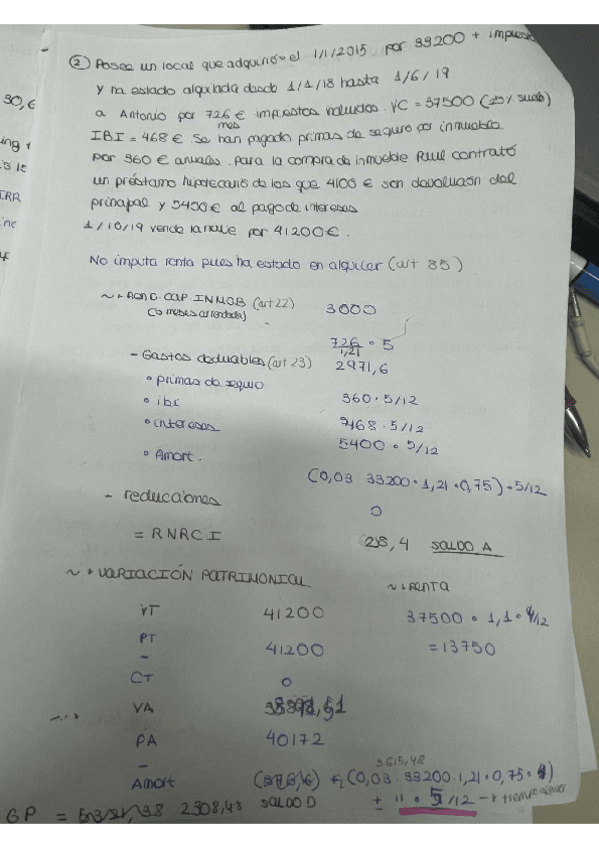 ② Posee un local que adquirió el 1/1/2015 por 33200 + impues
y ha estado alquilada desde 1/1/18 hasta 1/6/19
a Antonio por 726 € mes impuestos incluidos. VC = 37500 (25% suelo)
IBI = 468 €. Se han pagado primas de seguro por inmueble
por 360 € anuales. Para la compra de inmueble Raul contrató
un préstamo hipotecario de los que 4100 € son devolución del
principal y 5400 € al pago de intereses
1/10/19 vende la nave por 41200 €.
No imputa renta pues ha estado en alquiler (art 85)
~ + REND. CAP. INMOB (art 22) 3000
(5 meses arrendada)
726/1,21 · 5
- Gastos deducibles (art 23) 2971,6
• primas de seguro 360 · 5/12
• ibi 468 · 5/12
• intereses 5400 · 5/12
• Amort. (0,03 · 33200 · 1,21 · 0,75) · 5/12
- reducciones 0
= RNRCI 28,4 SALDO A
~ + VARIACIÓN PATRIMONIAL ~ + RENTA
VT 41200 37500 · 1,1 · 4/12
PT 41200 = 13750
-
CT 0
VA
PA 40172
- 3615,48
Amort (0,03 · 33200 · 1,21 · 0,75 · 4)
GP = 2308,48 SALDO D + " · 5/12 → tiempo alquiler
30,6
ing +
IRR
inc